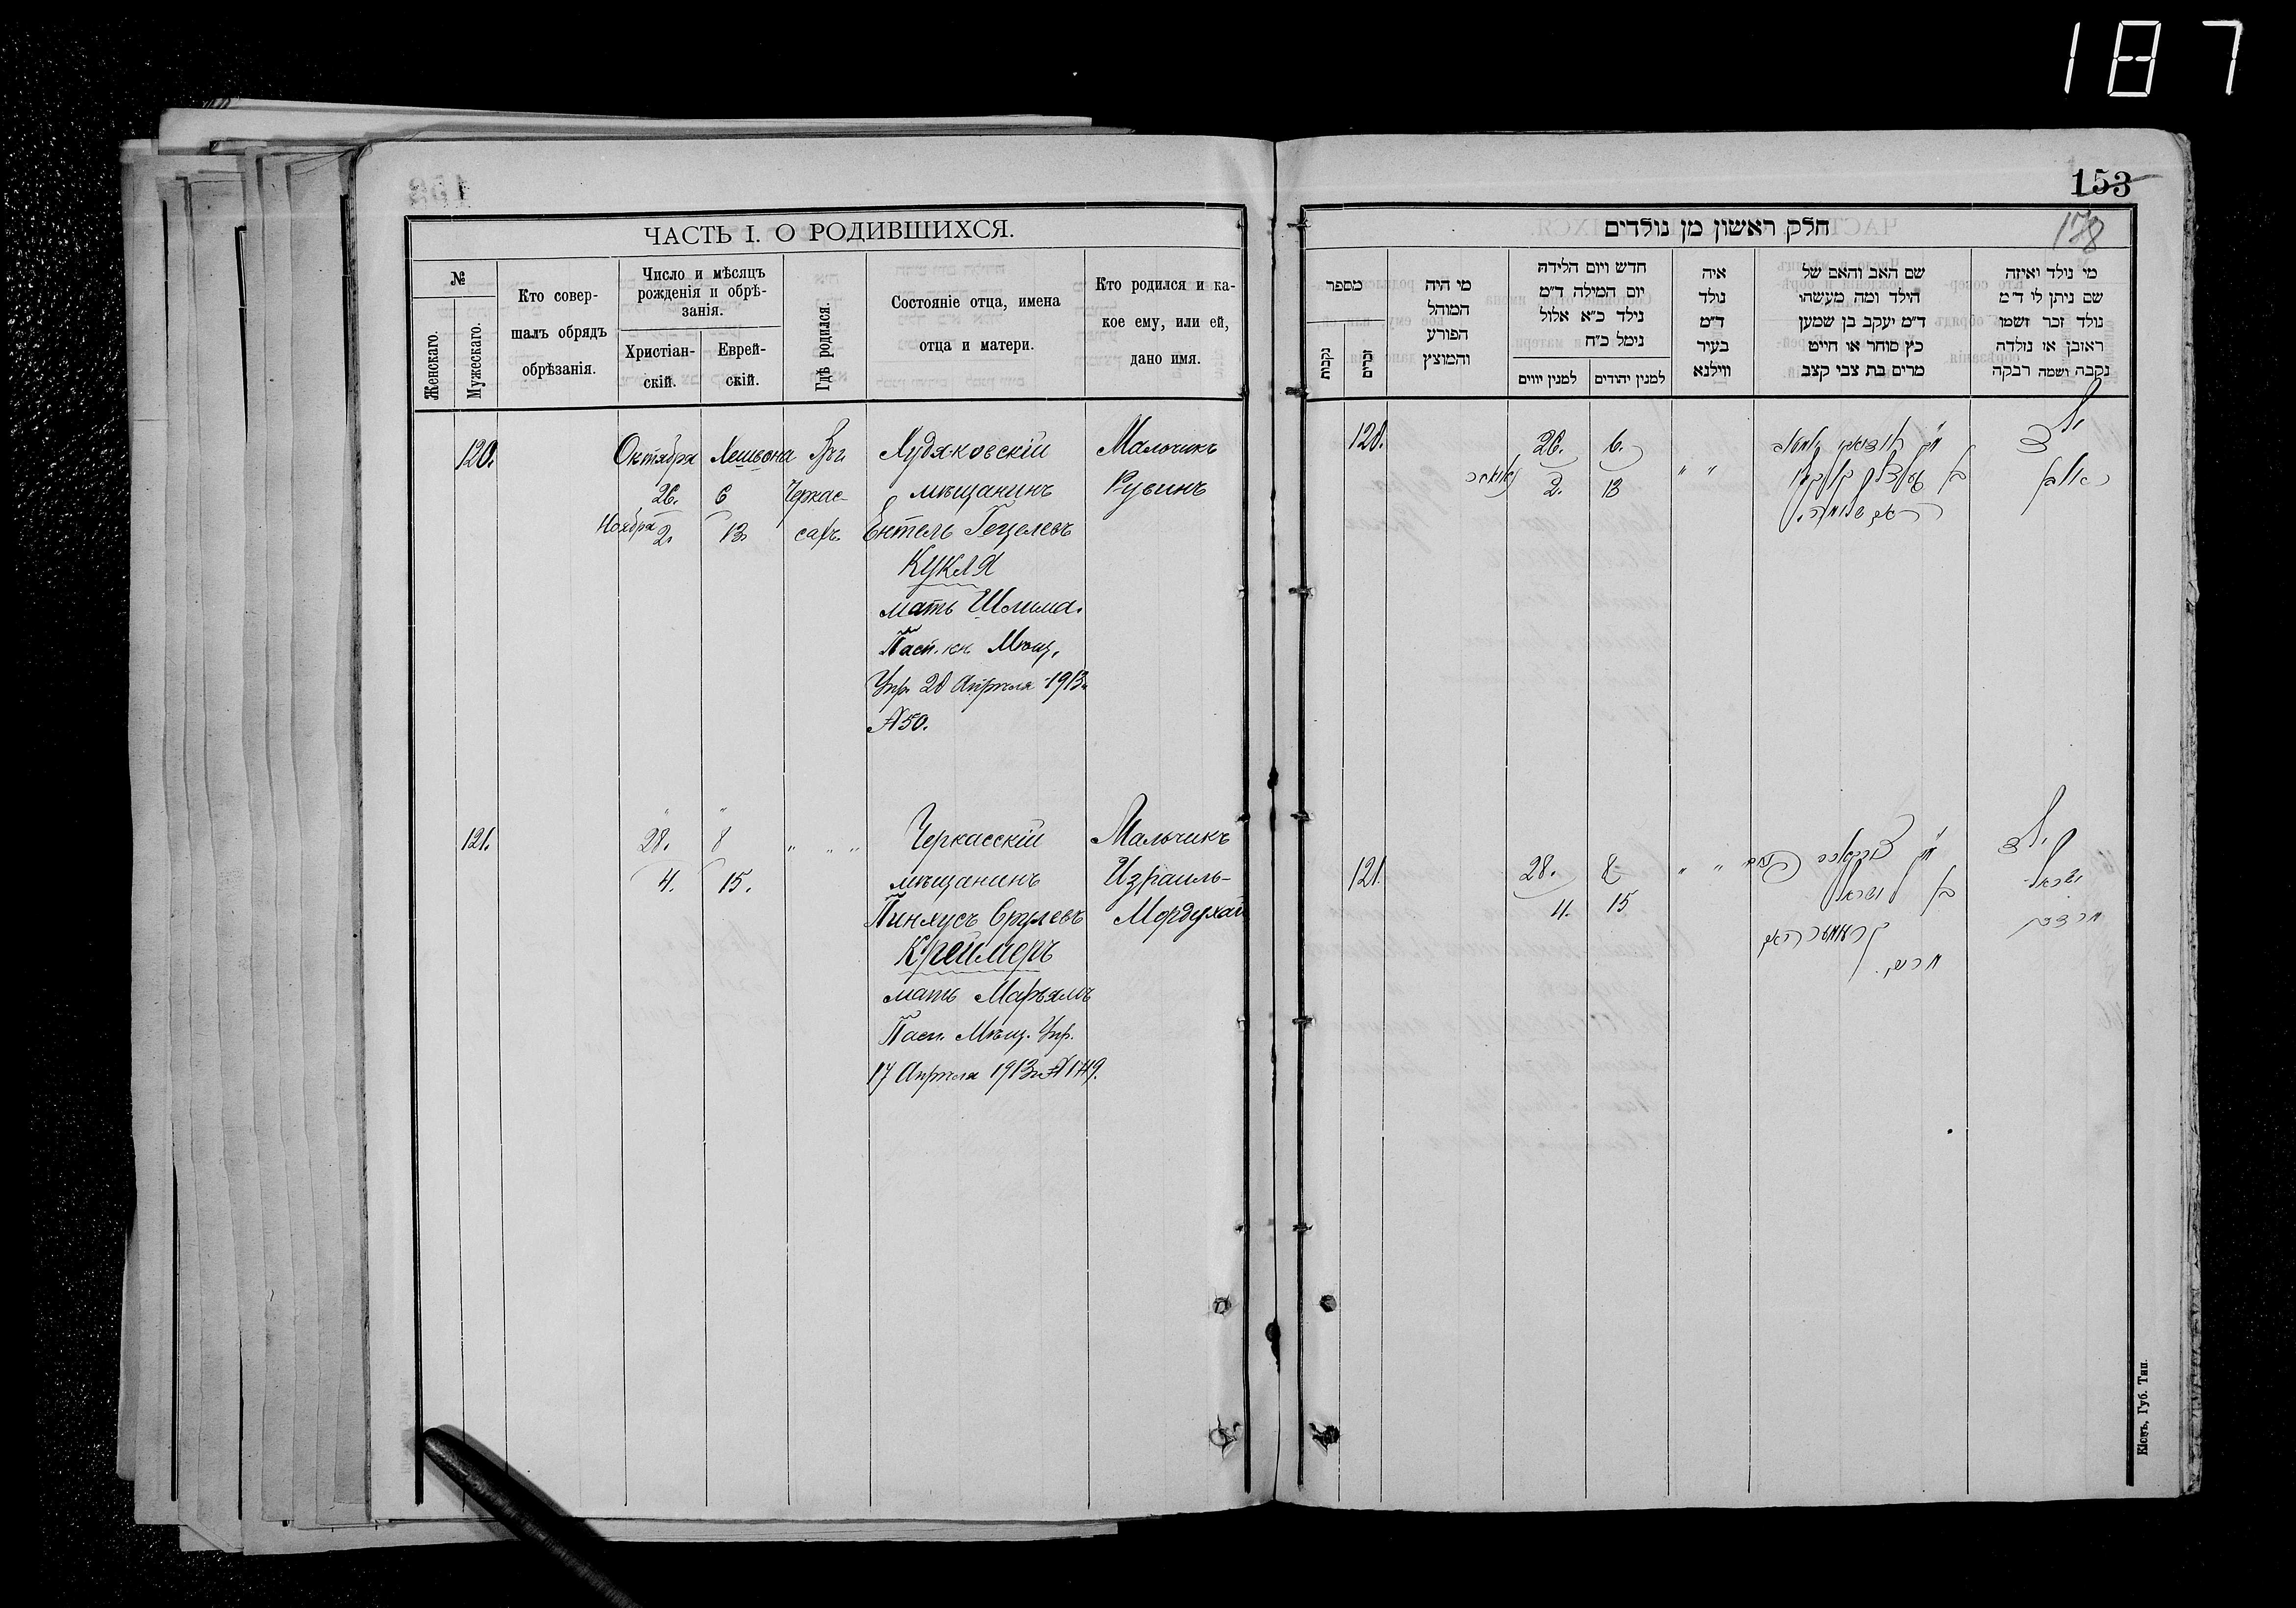 187
153
178
ЧАСТЬ I. О РОДИВШИХСЯ.
№
Женскаго.
Мужескаго.
Кто совер-
шалъ обрядъ
обрѣзанія.
Число и мѣсяцъ
рожденія и обрѣ-
занія.
Христіан-
скій.
Еврей-
скій.
Гдѣ родился.
Состояніе отца, имена
отца и матери.
Кто родился и ка-
кое ему, или ей,
дано имя.
120.
Октября
26.
Ноября 2.
6
13
Черкас-
сахъ
мѣщанинъ
Ентель Гецелевъ
Кукля
мать
Пасп. кн. Мѣщ.
Упр. 20 Апрѣля 1913
№ 50.
Мальчикъ
Рувинъ
121.
" "
28. 8
4. 15.
" " "
Черкасскій
мѣщанинъ
Пинхусъ Срулевъ
Креймеръ
мать Марьямъ
Пасп. Мѣщ. Упр.
17 Апрѣля 1913
Мальчикъ
Израиль-
Мордухай
חלק ראשון מן נולדים
מספר
נקבות
זכרים
מי היה
המוהל
הפורע
והמוצץ
חדש ויום הלידה
יום המילה ד״מ
נילד כ״א אלול
נימל כ״ח
למנין יווים
למנין יהודים
איה
נולד
ד״מ
בעיר
ווילנא
שם האב והאם של
הילד ומה מעשהו
ד״מ יעקב בן שמען
כץ סוחר או חייט
מרים בת צבי קצב
מי נולד ואיזה
שם ניתן לו ד״מ
נולד זכר ושמו
ראובן או נולדה
נקבה ושמה רבקה
120.
26. 6.
2. 13
" "
ילד
ראובן
121
28. 8
4. 15
" "
בן ישראל
ילד
ישראל
מרדכי
Кіевъ, Губ. Тип.